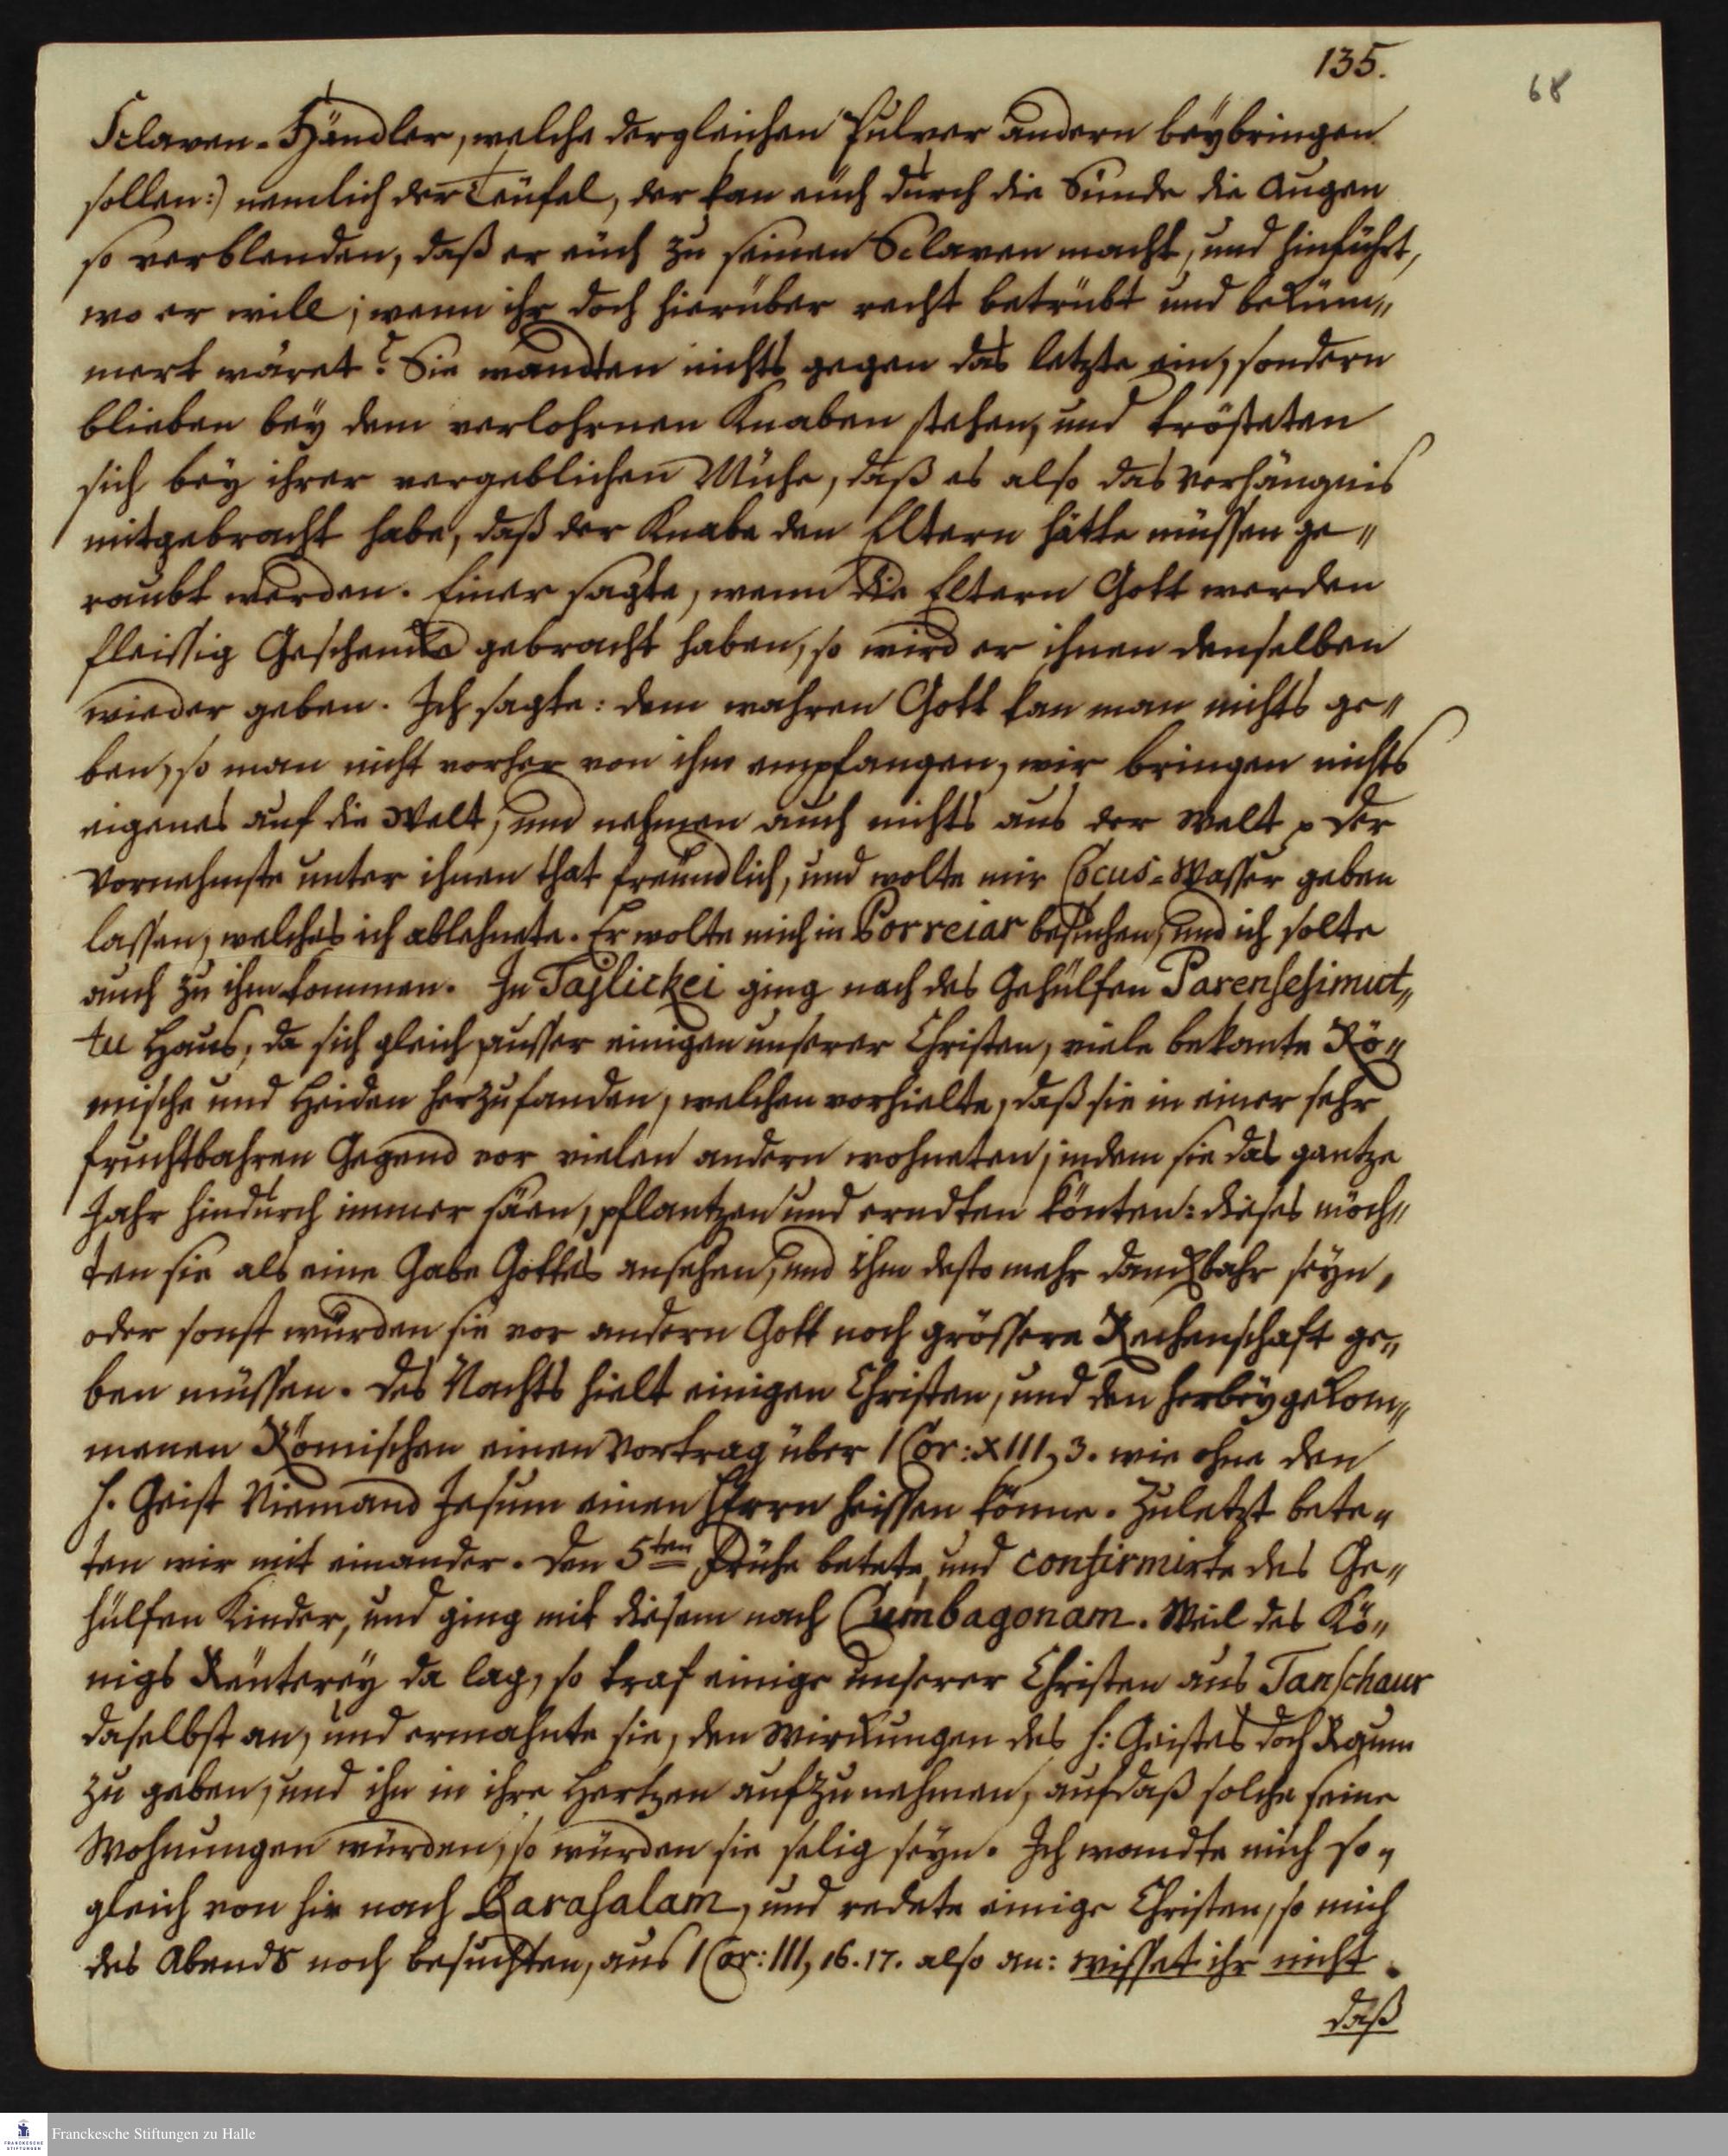 135.
68
Sclaven-Händler, welche dergleichen Pulver andern beybringen
sollen:) nemlich der Teüfel, der kan eüch durch die Sünde die Augen
so verblenden, daß er eüch zu seinen Sclaven macht, und hinführt,
wo er will; wenn ihr doch hierüber recht betrübt und beküm„
mert wäret? Sie wandten nichts gegen das letzte ein, sondern
blieben bey dem verlohrnen Knaben stehen, und trösteten
sich bey ihrer vergeblichen Mühe, daß es also das Verhängnis
mitgebracht habe, daß der Knabe den Eltern hätte müssen ge„
raubt werden. Einer sagte, wenn die Eltern Gott werden
fleissig Geschencke gebracht haben, so wird er ihnen denselben
wieder geben. Ich sagte: dem wahren Gott kan man nichts ge„
ben, so man nicht vorher von ihm empfangen, wir bringen nichts
eigenes auf die Welt, und nehmen auch nichts aus der Welt p der
Vornehmste unter ihnen that freündlich, und wolte mir Cocus-Wasser geben
lassen, welches ich ablehnete. Er wolte mich in Porreiar besuchen, und ich solte
auch zu ihm kommen. In Tajlickei ging nach des Gehülfen Parensesimut„
tu Haus, da sich gleich ausser einigen unserer Christen, viele bekante Rö„
mische und Heiden herzufanden, welchen vorhielte, daß sie in einer sehr
fruchtbahren Gegend vor vielen andern wohneten, indem sie das gantze
Jahr hindurch immer säen, pflantzen und erndten könten: dieses möch„
ten sie als eine Gabe Gottes ansehen, und Ihm desto mehr danckbahr seyn,
oder sonst würden sie vor andern Gott noch grössere Rechenschaft ge„
ben müssen. Des Nachts hielt einigen Christen, und den herbeygekom„
menen Römischen einen Vortrag über 1 Cor: XIII, 3. wie ohne den
H. Geist Niemand Jesum einen HErrn heissen könne. Zuletzt bete„
ten wir mit einander. Den 5ten Frühe betete, und confirmirte des Ge„
hülfen Kinder, und ging mit diesem nach Cumbagonam. Weil des Kö„
nigs Reüterey da lag, so traf einige unserer Christen aus Tanschaur
daselbst an, und ermahnte sie, den Wirckungen des H: Geistes doch Raum
zu geben, und ihn in ihre Hertzen aufzunehmen, aufdaß solche seine
Wohnungen würden, so würden sie selig seyn. Ich wandte mich so„
gleich von hir nach Barasalam, und redete einige Christen, so mich
des Abends noch besuchten, aus 1 Cor: III, 16. 17. also an: wisset ihr nicht
daß
FRANCKESCHE STIFTUNGEN
Franckesche Stiftungen zu Halle